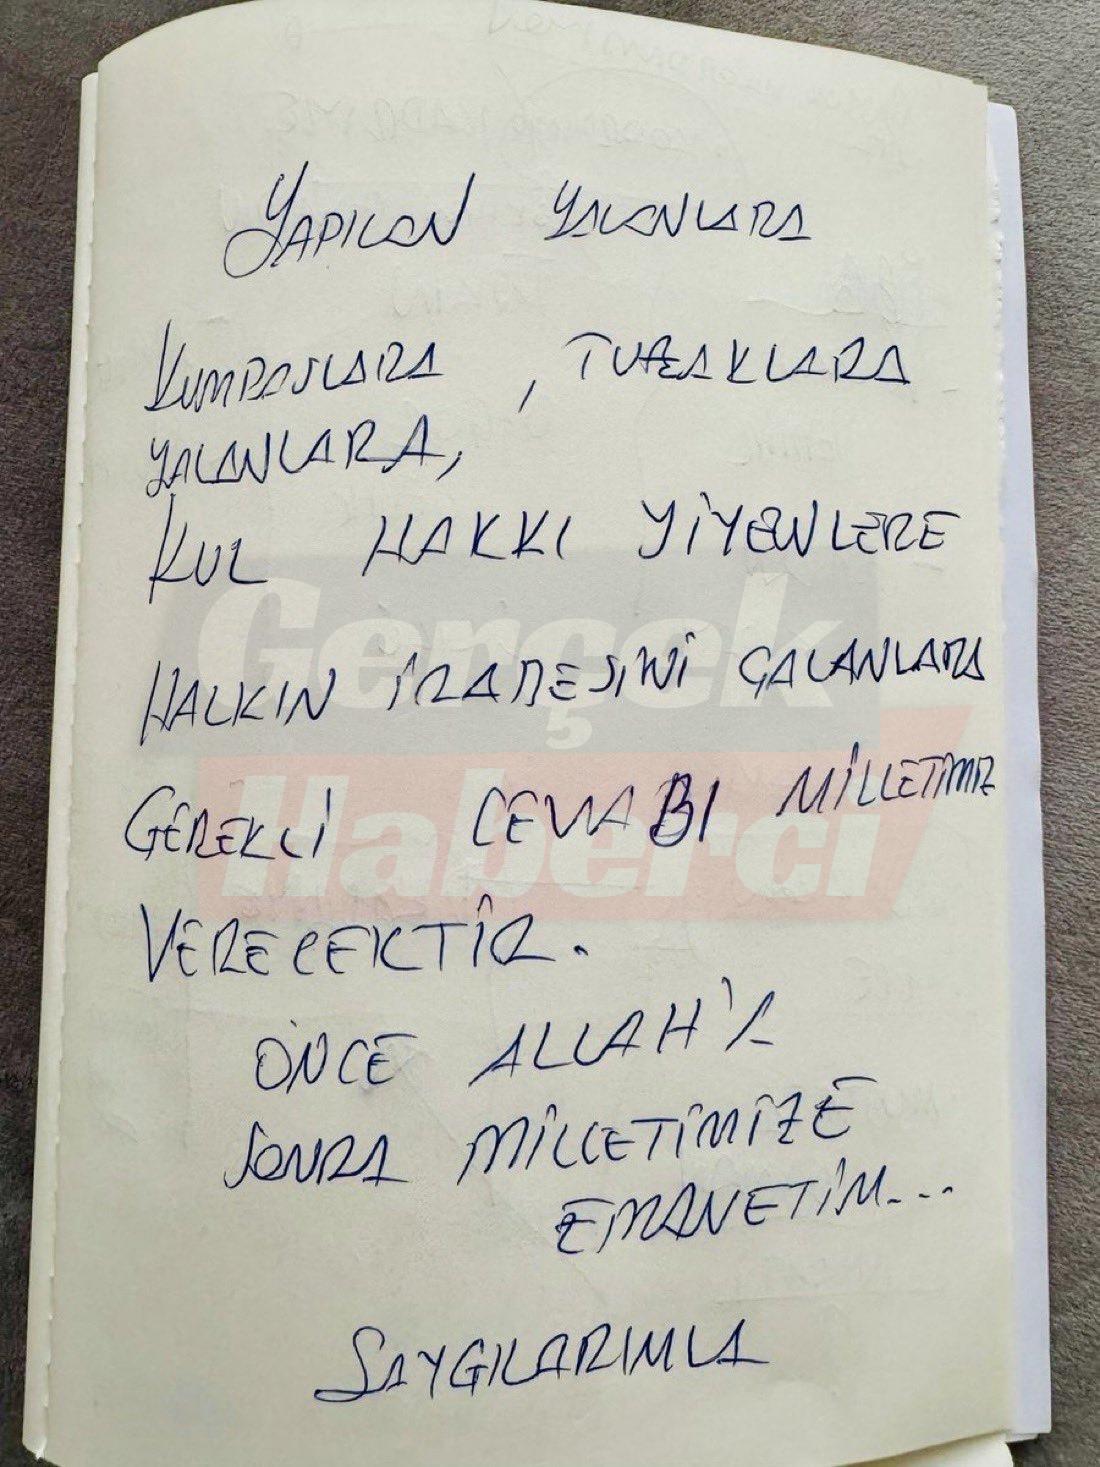 YAPILAN YALANLARA
KUMPASLARA , TUZAKLARA
YALANLARA,
KUL HAKKI YİYENLERE
HALKIN İRADESİNİ ÇALANLARA
GEREKLİ CEVABI MİLLETİMİZ
VERECEKTİR.
ÖNCE ALLAH'A
SONRA MİLLETİMİZE
EMANETİM...
SAYGILARIMLA
Gerçek
Haberci